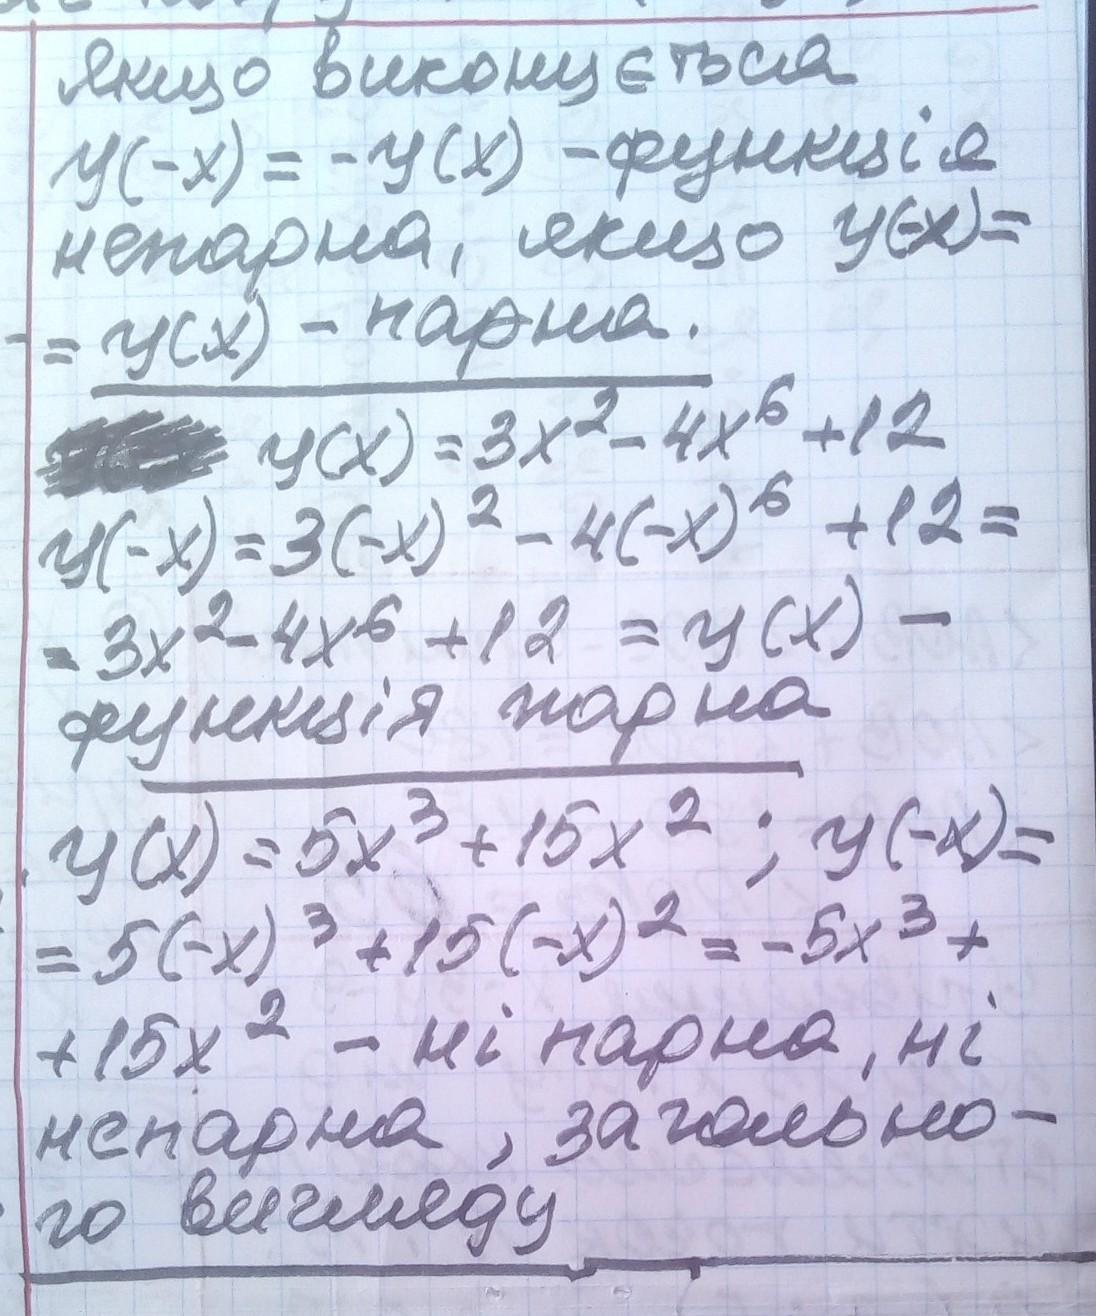 якщо виконується
y(-x) = -y(x) - функція
непарна, якщо y(-x) =
= y(x) - парна.
y(x) = 3x² - 4x⁶ + 12
y(-x) = 3(-x)² - 4(-x)⁶ + 12 =
= 3x² - 4x⁶ + 12 = y(x) -
функція парна
y(x) = 5x³ + 15x² ; y(-x) =
= 5(-x)³ + 15(-x)² = -5x³ +
+ 15x² - ні парна, ні
непарна, загально-
го вигляду